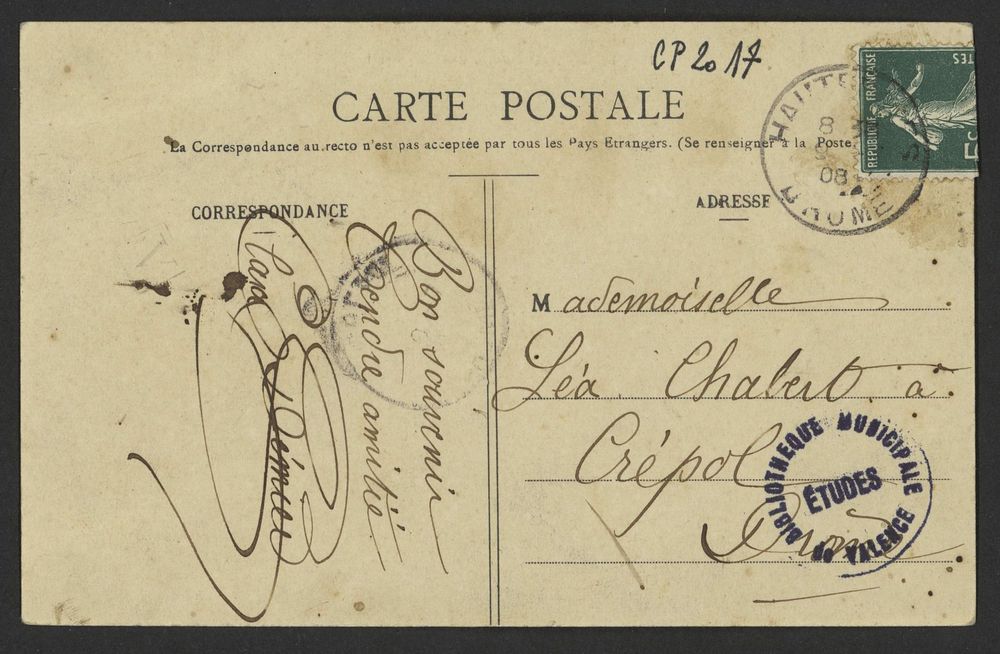 CP2017
CARTE POSTALE
La Correspondance au recto n'est pas acceptée par tous les Pays Etrangers. (Se renseigner à la Poste
CORRESPONDANCE
ADRESSE
Bon souvenir
Tendre amitié
REPUBLIQUE FRANÇAISE
HAUTE
8
08
DROME
Mademoiselle
Léa Chabert à
Crépol
Drôme
BIBLIOTHEQUE MUNICIPALE
ÉTUDES
DE VALENCE